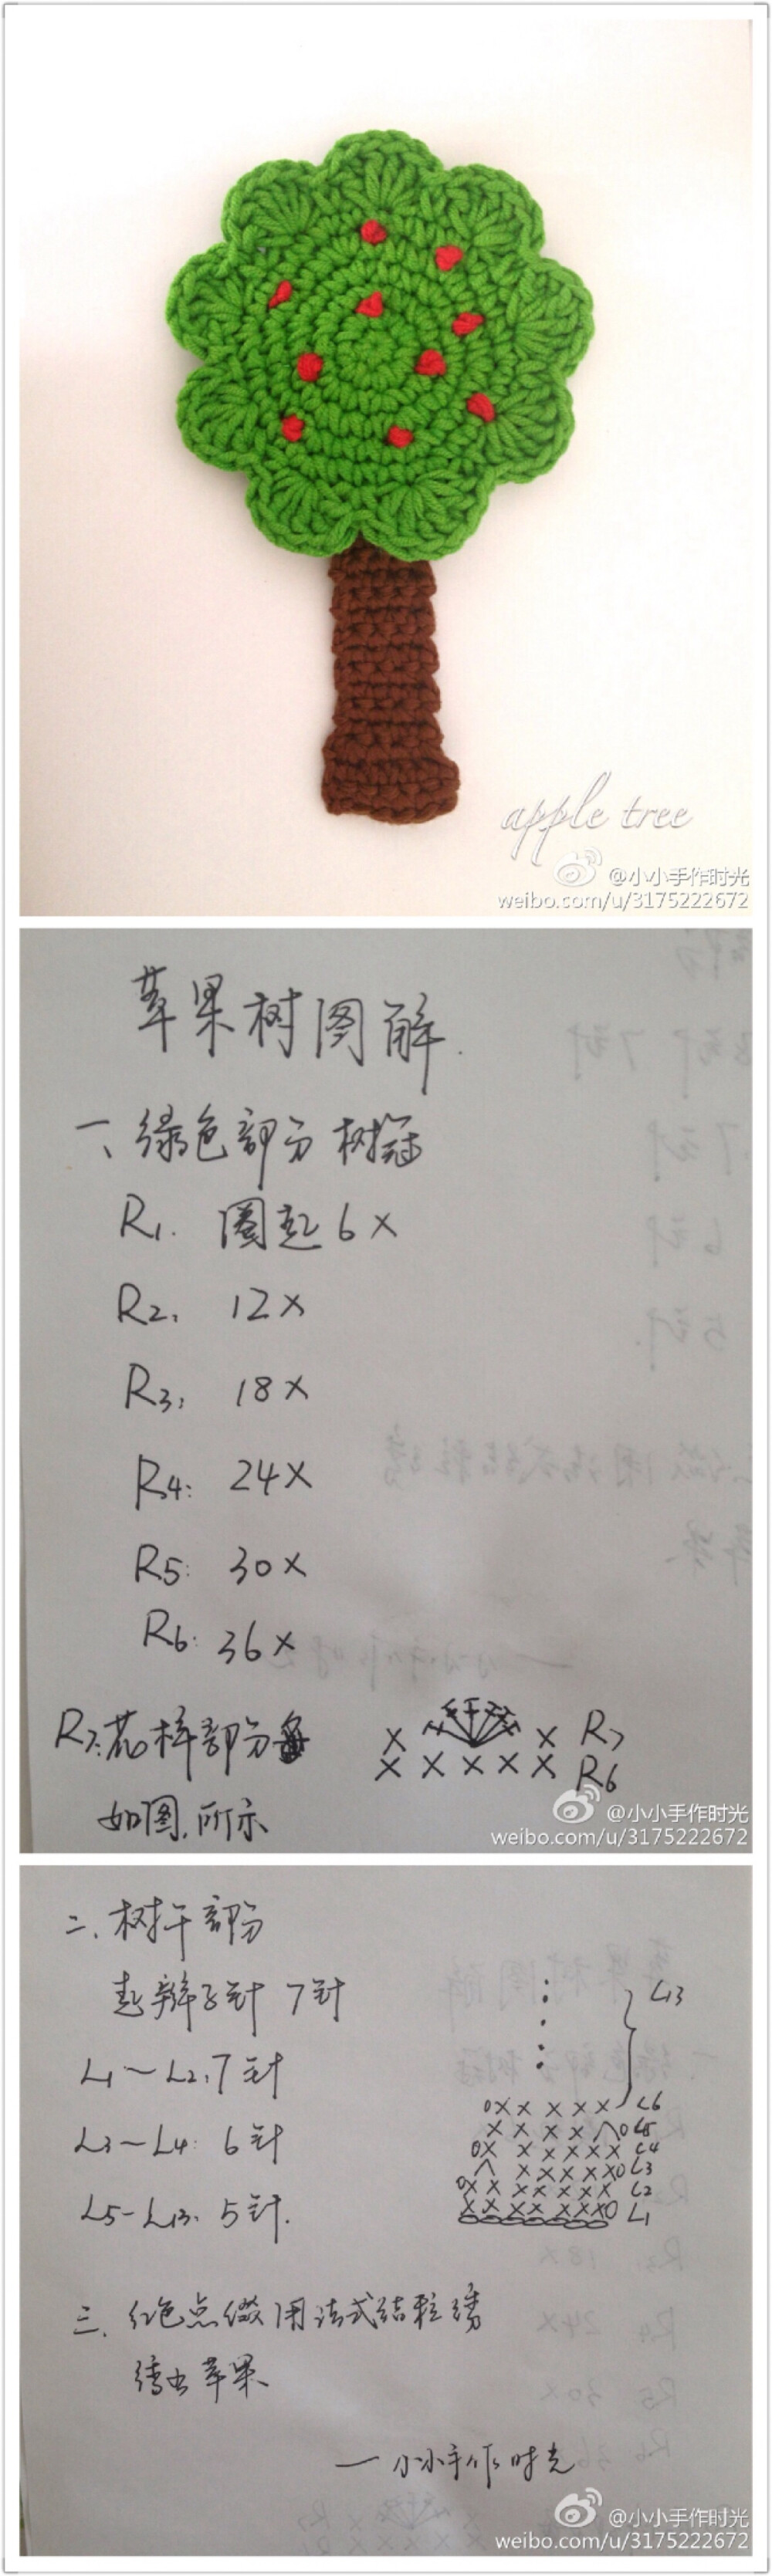 apple tree
@小小手作时光
weibo.com/u/3175222672
苹果树图解.
一、绿色部分 树冠
R1. 圈起6X
R2: 12X
R3: 18X
R4: 24X
R5: 30X
R6: 36X
R7:花样部分
如图,所示
X X R7
X X X X X R6
@小小手作时光
weibo.com/u/3175222672
二、树干部分
起辫子针 7针
L1~L2.7针
L3~L4: 6针
L5-L13. 5针.
L13
0XX XXX L6
XXXX∧0 L5
0X XXXXX L4
∧ XXXXX0 L3
0XX XXXXX L2
XXXXXXX0 L1
三、红色点缀用法式结粒绣
绣出苹果
一小小手作时光
@小小手作时光
weibo.com/u/3175222672